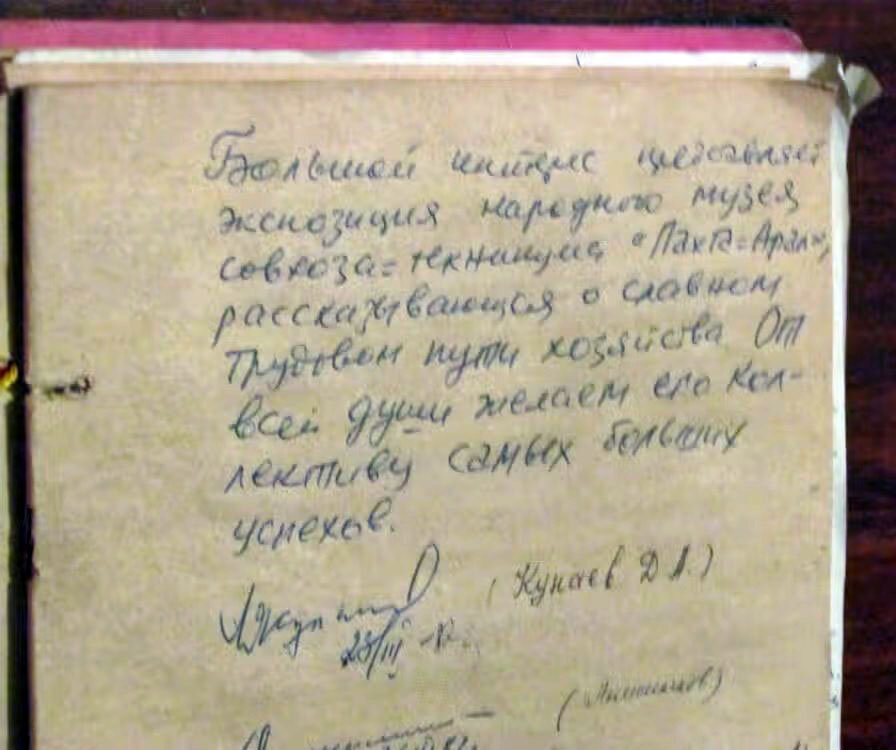 Большой интерес представляет
экспозиция народного музея
совхоза=техникума "Пахта=Арал",
рассказывающая о славном
трудовом пути хозяйства. От
всей души желаем его кол-
лективу самых больших
успехов.
(Кунаев Д. А.)
23/III